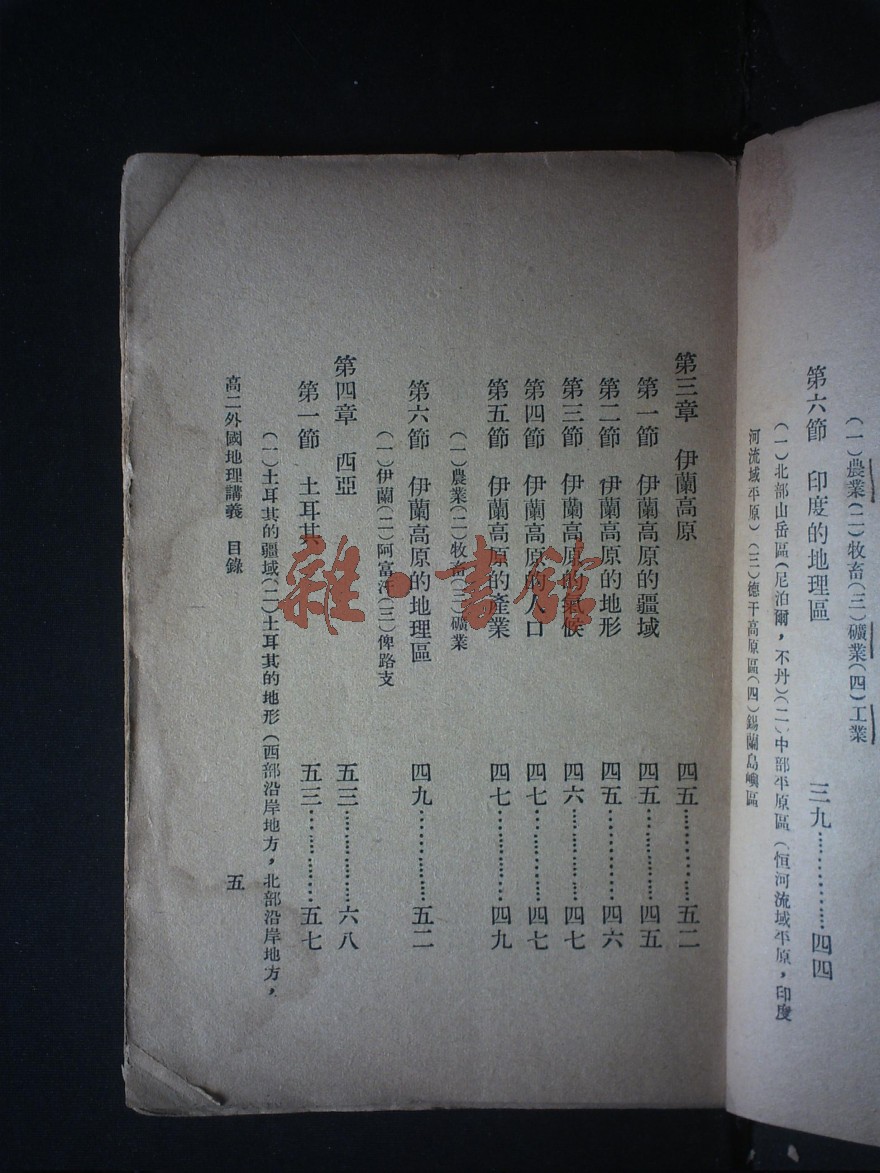 (一)農業(二)牧畜(三)礦業(四)工業
第六節　印度的地理區　三九……………四四
(一)北部山岳區(尼泊爾，不丹)(二)中部平原區(恒河流域平原，印度
河流域平原)(三)德干高原區(四)錫蘭島嶼區
第三章　伊蘭高原　四五……………五二
第一節　伊蘭高原的疆域　四五……………四五
第二節　伊蘭高原的地形　四五……………四六
第三節　伊蘭高原的氣候　四六……………四七
第四節　伊蘭高原的人口　四七……………四七
第五節　伊蘭高原的產業　四七……………四九
(一)農業(二)牧畜(三)礦業
第六節　伊蘭高原的地理區　四九……………五二
(一)伊蘭(二)阿富汗(三)俾路支
第四章　西亞　五三……………六八
第一節　土耳其　五三……………五七
(一)土耳其的疆域(二)土耳其的地形(西部沿岸地方，北部沿岸地方，
高二外國地理講義　目錄　五
雜·書館